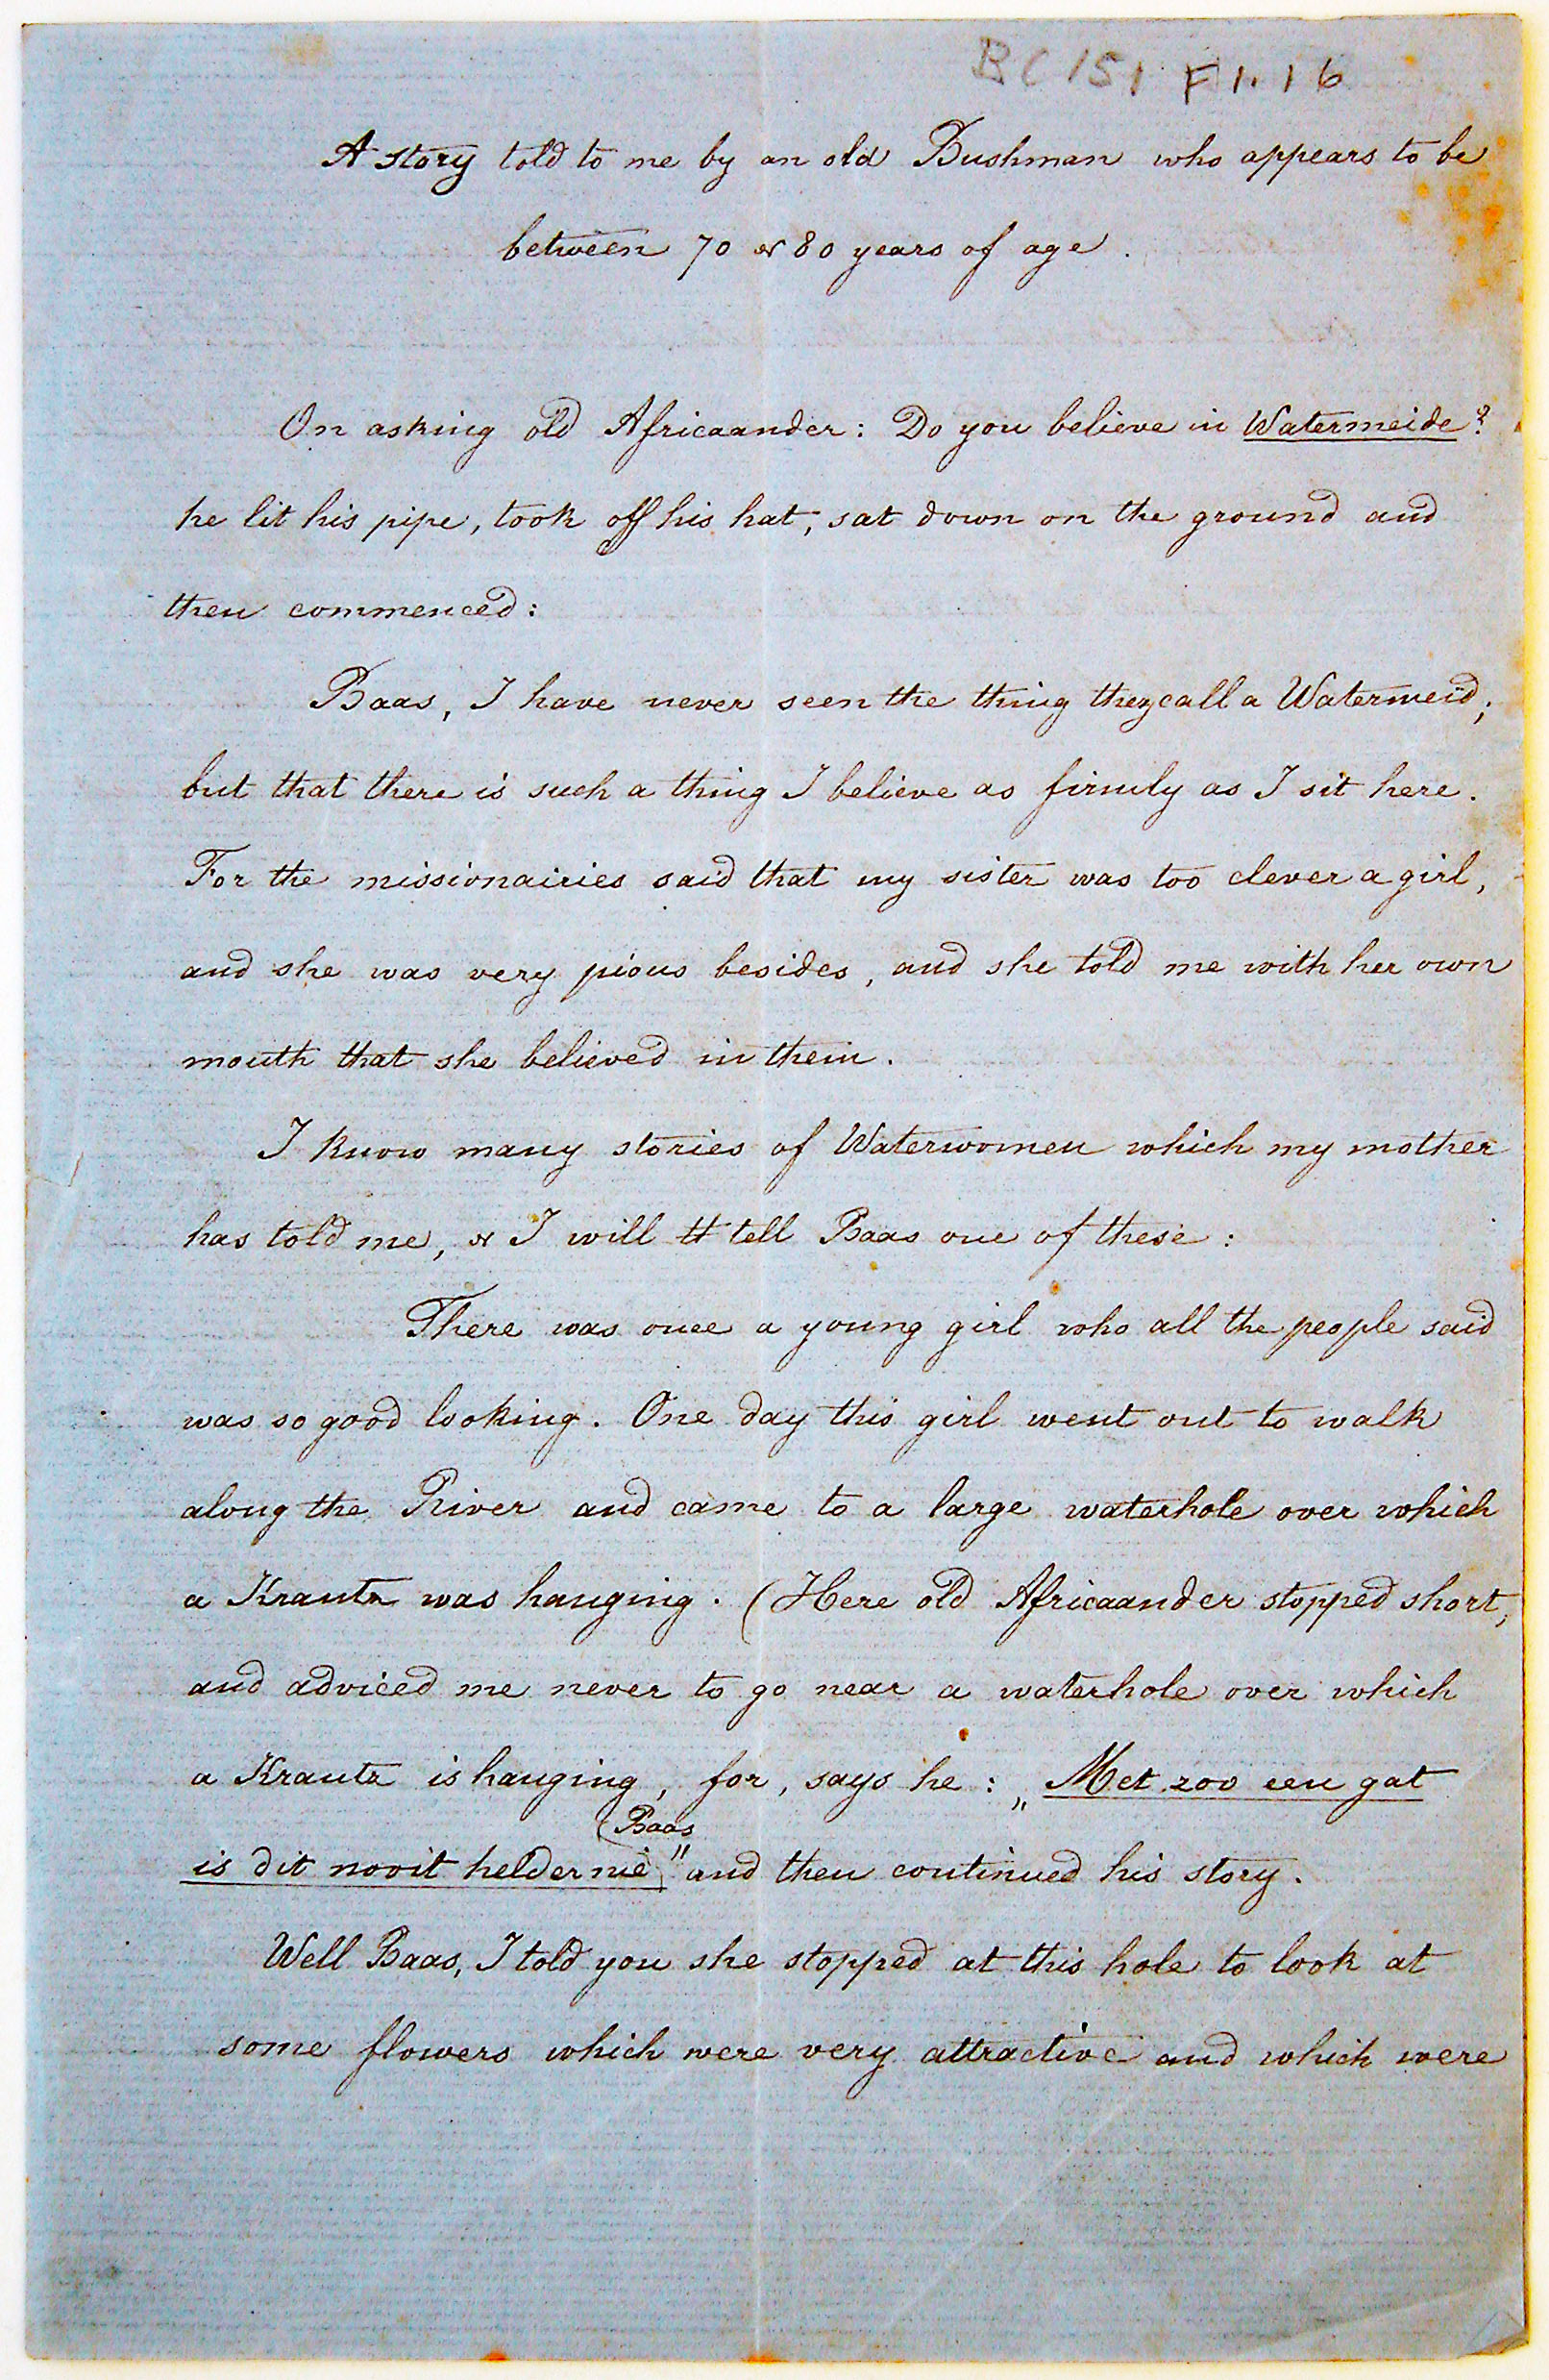 BC 151 F1.16
A story told to me by an old Bushman who appears to be
between 70 or 80 years of age.
On asking old Africaander: Do you believe in Watermeide?
he lit his pipe, took off his hat, sat down on the ground and
then commenced:
Baas, I have never seen the thing they call a Watermeid;
but that there is such a thing I believe as firmly as I sit here.
For the missionairies said that my sister was too clever a girl,
and she was very pious besides, and she told me with her own
mouth that she believed in them.
I know many stories of Waterwomen which my mother
has told me, & I will tt tell Baas one of these:
There was once a young girl who all the people said
was so good looking. One day this girl went out to walk
along the River and came to a large waterhole over which
a Krantz was hanging. (Here old Africaander stopped short,
and adviced me never to go near a waterhole over which
a Krantz is hanging, for, says he: „Met zoo een gat
(Baas
is dit nooit helder nie" and then continued his story.
Well Baas, I told you she stopped at this hole to look at
some flowers which were very attractive and which were